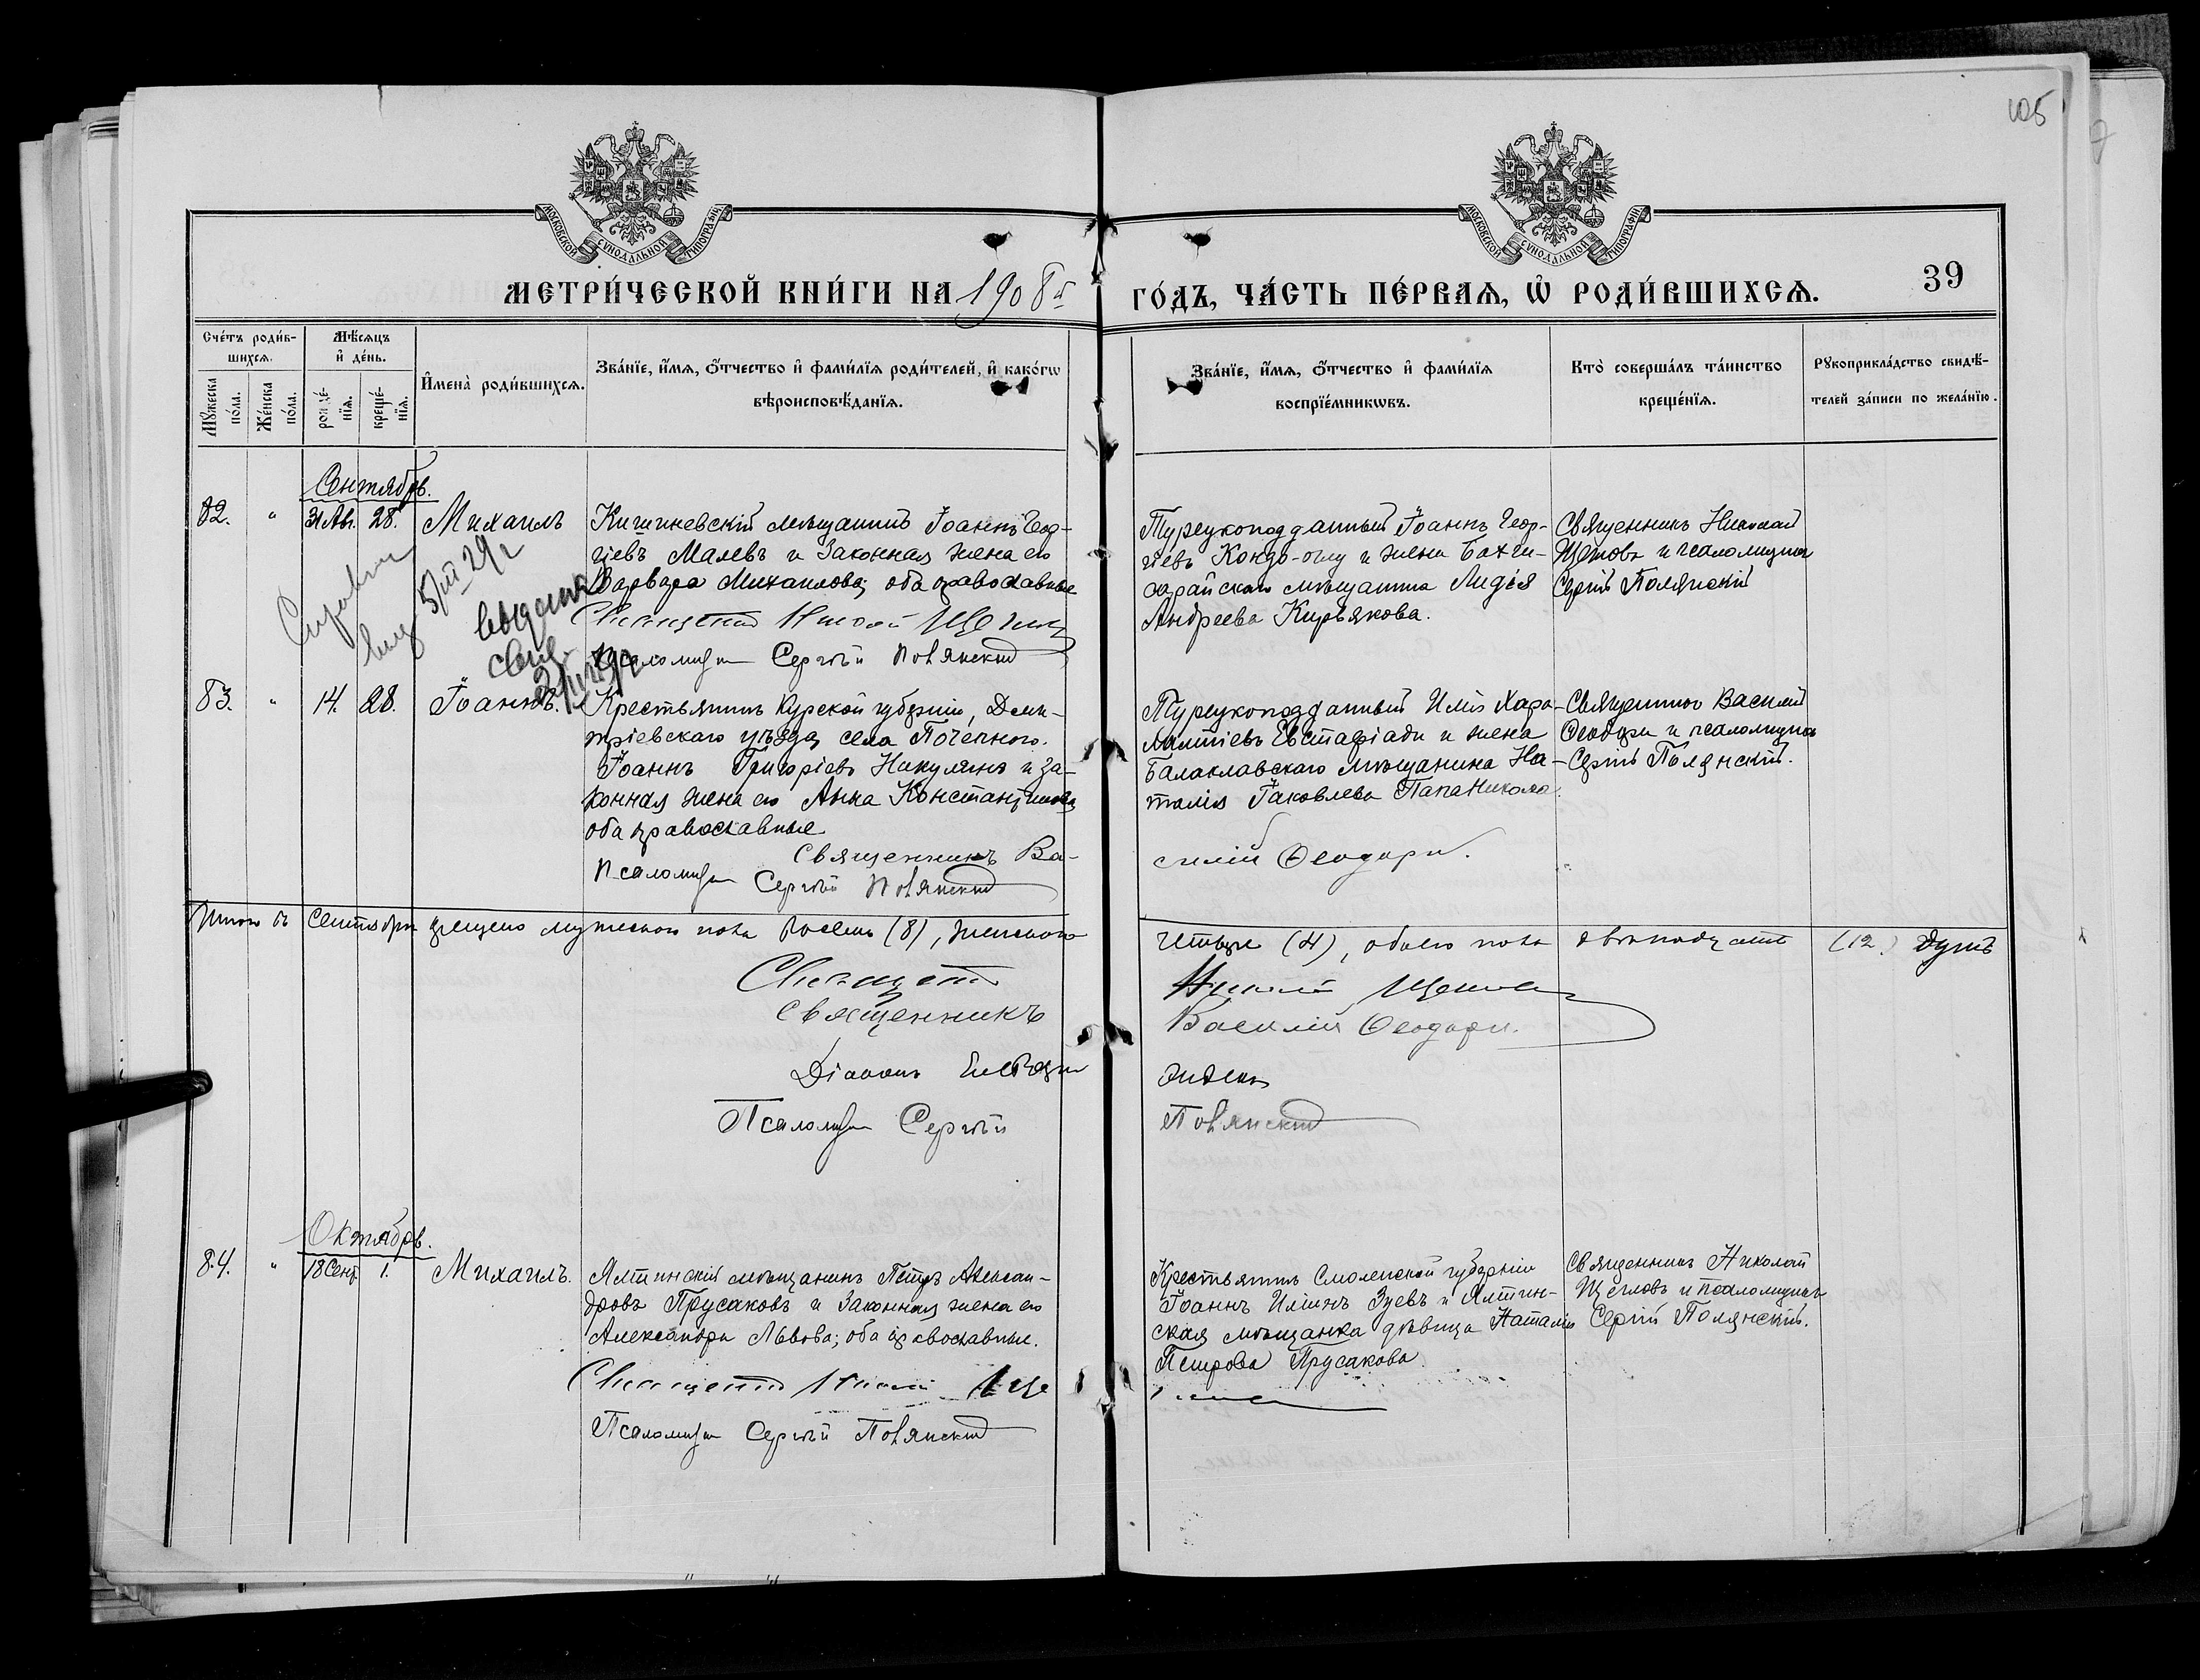 105
МОСКОВСКОЙ СѴНОДАЛЬНОЙ ТИПОГРАФІИ
МОСКОВСКОЙ СѴНОДАЛЬНОЙ ТИПОГРАФІИ
МЕТРИ́ЧЕСКОЙ КНИ́ГИ НА 1908й ГО́ДЪ, ЧА́СТЬ ПЕ́РВАѦ, Ѡ РОДИ́ВШИХСѦ. 39
Сче́тъ роди́в-
шихсѧ.
Мѣ́сѧцъ
и҆ де́нь.
Мꙋ́жеска
по́ла.
Же́нска
по́ла.
рожде́-
нїѧ.
креще́-
нїѧ.
И҆мена̀ роди́вшихсѧ.
Зва́нїе, и҆́мѧ, ѻ҆́тчество и҆ фами́лїѧ роди́телей, и҆ како́гѡ
вѣроисповѣ́данїѧ.
Зва́нїе, и҆́мѧ, ѻ҆́тчество и҆ фами́лїѧ
воспрїе́мникѡвъ.
Кто̀ соверша́лъ та́инство
креще́нїѧ.
Рꙋкоприкла́дство свидѣ́-
телей за́писи по жела́нїю.
Сентябрь.
82. " 31 Авг. 28. Михаилъ
Кишиневскій мѣщанинъ Іоаннъ Геор-
гіевъ Малевъ и законная жена его
Варвара Михаилова; оба православные
Священникъ Николай
Псаломщ Сергѣй Полянскій
Турецкоподданный Іоаннъ Геор-
гіевъ Кондо-оглу и жена Бахчи-
сарайскаго мѣщанина Лидія
Андреева Кирьякова.
Священникъ Николай
Щегловъ и псаломщикъ
Сергій Полянскій
выдана
83. " 14. 28. Іоаннъ.
Крестьянинъ Курской губерніи, Дми-
тріевскаго уѣзда, села Почепного.
Іоаннъ Григоріевъ Никулинъ и за-
конная жена его Анна Константинова
оба православные
Священникъ Ва-
силій Ѳеодори.
Псаломщ Сергѣй Полянскій
Турецкоподданный Илія Хара-
лампіевъ Евстафіади и жена
Балаклавскаго мѣщанина На-
талія Іаковлева ПапаНикола.
Священникъ Василій
Ѳеодори и псаломщикъ
Сергій Полянскій.
Итого въ Сентябрѣ крещено мужескаго пола восемь (8), женскаго четыре (4), обоего пола двѣнадцать (12.) душъ
Священникъ Николай Щегловъ
Священникъ Василій Ѳеодори.
Діаконъ
Псаломщ Сергѣй Полянскій
Октябрь.
84. " 18 Сент. 1. Михаилъ.
Ялтинскій мѣщанинъ Петръ Алексан-
дровъ Прусаковъ и законная жена его
Александра Львова; оба православные.
Священникъ Николай Щегловъ
Псаломщ Сергѣй Полянскій
Крестьянинъ Смоленской губерніи
Іоаннъ Иліинъ Зуевъ и Ялтин-
ская мѣщанка дѣвица Наталія
Петрова Прусакова.
Священникъ Николай
Щегловъ и псаломщикъ
Сергій Полянскій.